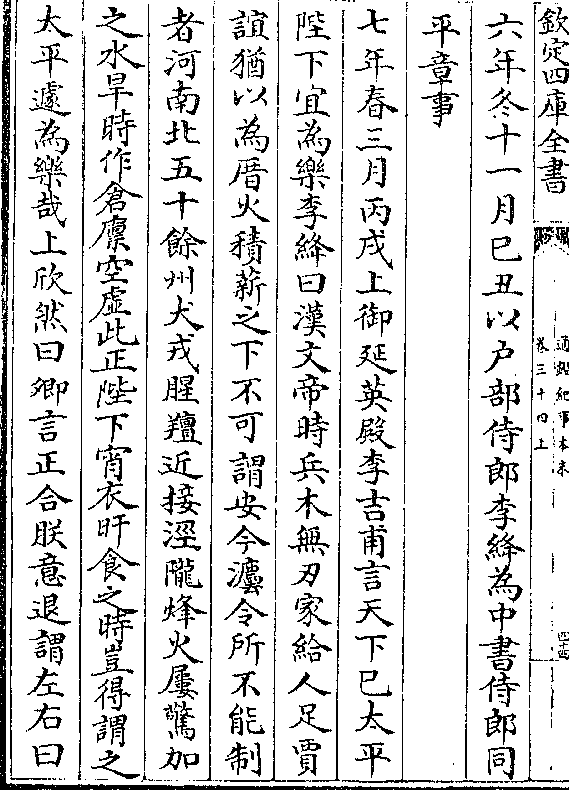 欽定四庫全書
通鑑紀事本末
卷三十四上
六年冬十一月已丑以户部侍郎李絳為中書侍郎同
平章事
七年春三月丙戌上御延英殿李吉甫言天下已太平
陛下宜為樂李絳曰漢文帝時兵木無刃家給人足賈
誼猶以為厝火積薪之下不可謂安今灋令所不能制
者河南北五十餘州犬戎腥羶近接涇隴烽火屢驚加
之水旱時作倉廪空虛此正陛下宵衣旰食之時豈得謂之
太平遽為樂哉上欣然曰卿言正合朕意退謂左右曰